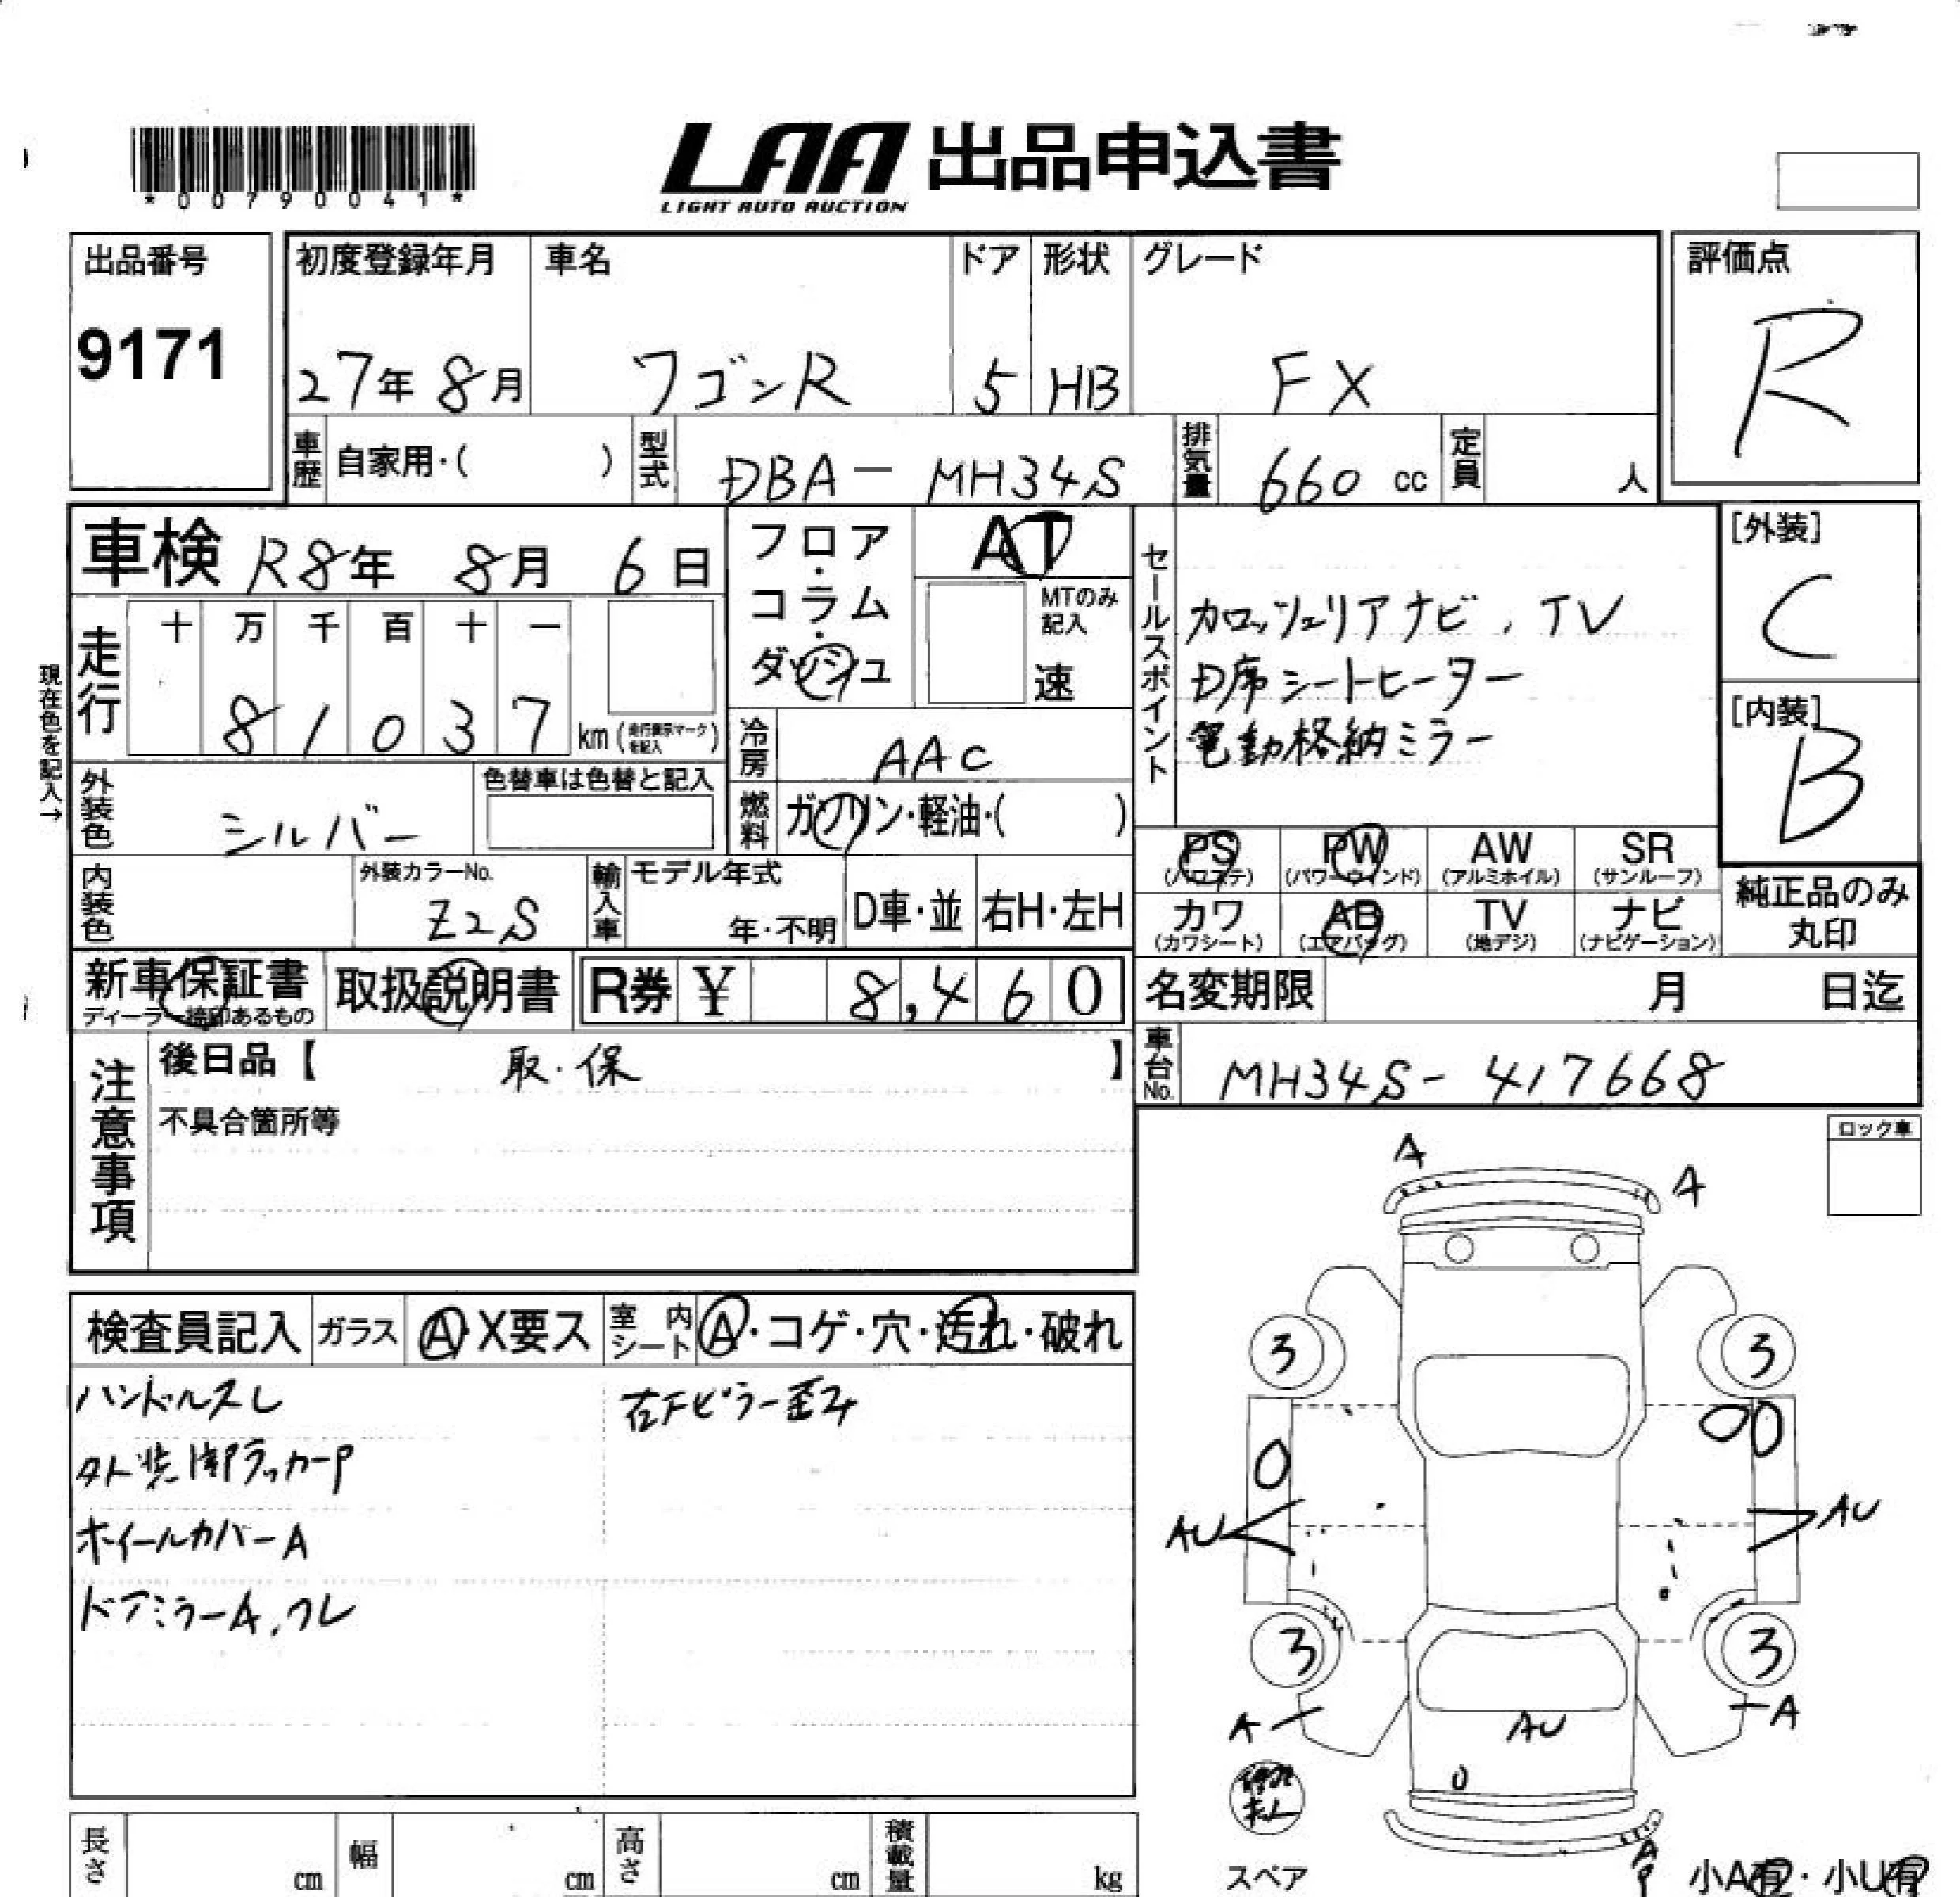 *00790041*
LAA 出品申込書
LIGHT AUTO AUCTION
出品番号
9171
初度登録年月 車名 ドア 形状 グレード
27年 8月 ワゴンR 5 HB FX
評価点
R
車歴 自家用・( ) 型式 DBA-MH34S 排気量 660 cc 定員 人
車検 R8年 8月 6日
フロア・コラム・ダッシュ
AT
MTのみ記入
速
現在色を記入→
走行 十 万 千 百 十 一
81037 km(走行表示マークを記入)
冷房 AAC
燃料 ガソリン・軽油・( )
外装色 シルバー
色替車は色替と記入
内装色
外装カラーNo.
Z2S
輸入車 モデル年式
年・不明 D車・並 右H・左H
セールスポイント
カロッツェリアナビ、TV
D席シートヒーター
電動格納ミラー
[外装]
C
[内装]
B
PS (パワステ) PW (パワーウィンド) AW (アルミホイル) SR (サンルーフ)
カワ (カワシート) AB (エアバッグ) TV (地デジ) ナビ (ナビゲーション)
純正品のみ
丸印
新車保証書
ディーラー捺印あるもの
取扱説明書
R券 ¥ 8,460
名変期限 月 日迄
車台No. MH34S-417668
注意事項
後日品【 取・保 】
不具合箇所等
ロック車
検査員記入 ガラス A・X要ス 室内シート A・コゲ・穴・汚れ・破れ
ハンドルスレ
外装部ラッカーP
ホイールカバーA
ドアミラーA、ワレ
右Fピラー歪み
A
A
3 3
AU AU
3 3
A A
AU
A
P
スペア
小A有・小U有
長さ cm 幅 cm 高さ cm 積載量 kg